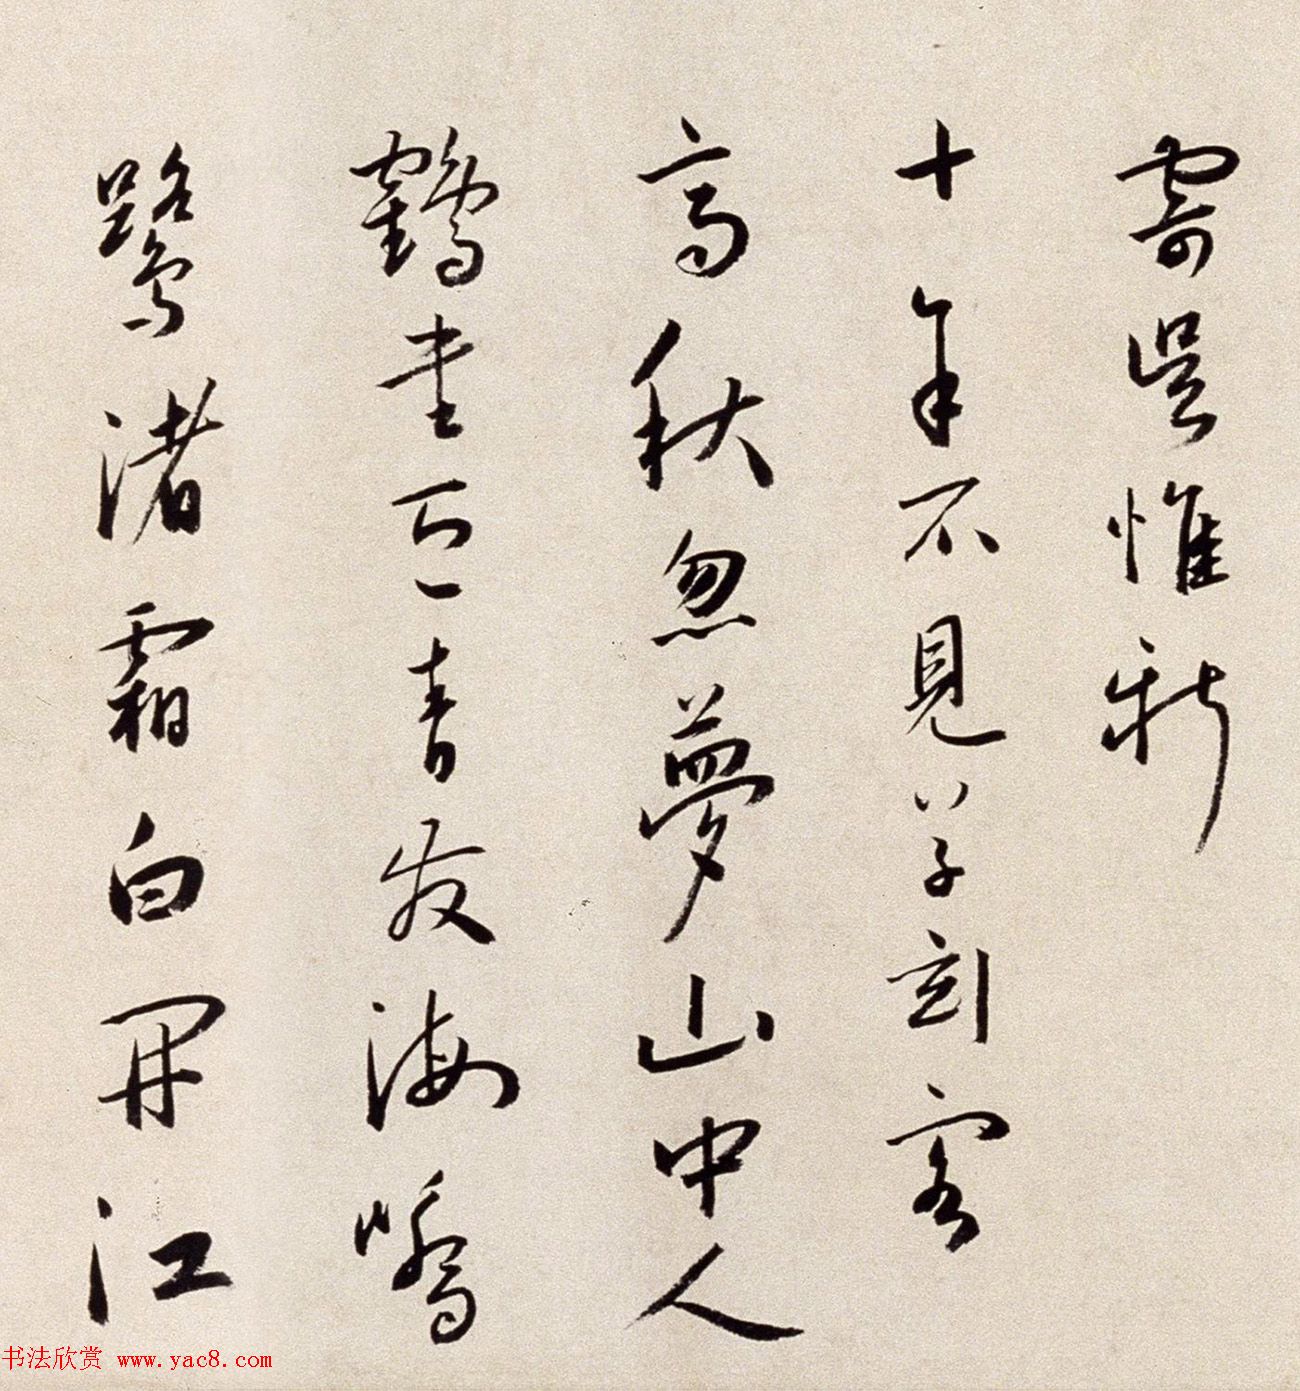 寄吳惟新
十年不見草客
高秋忽夢山中人
鶴臺青發海嶠
鷺渚霜白開江
书法欣赏 www.yac8.com